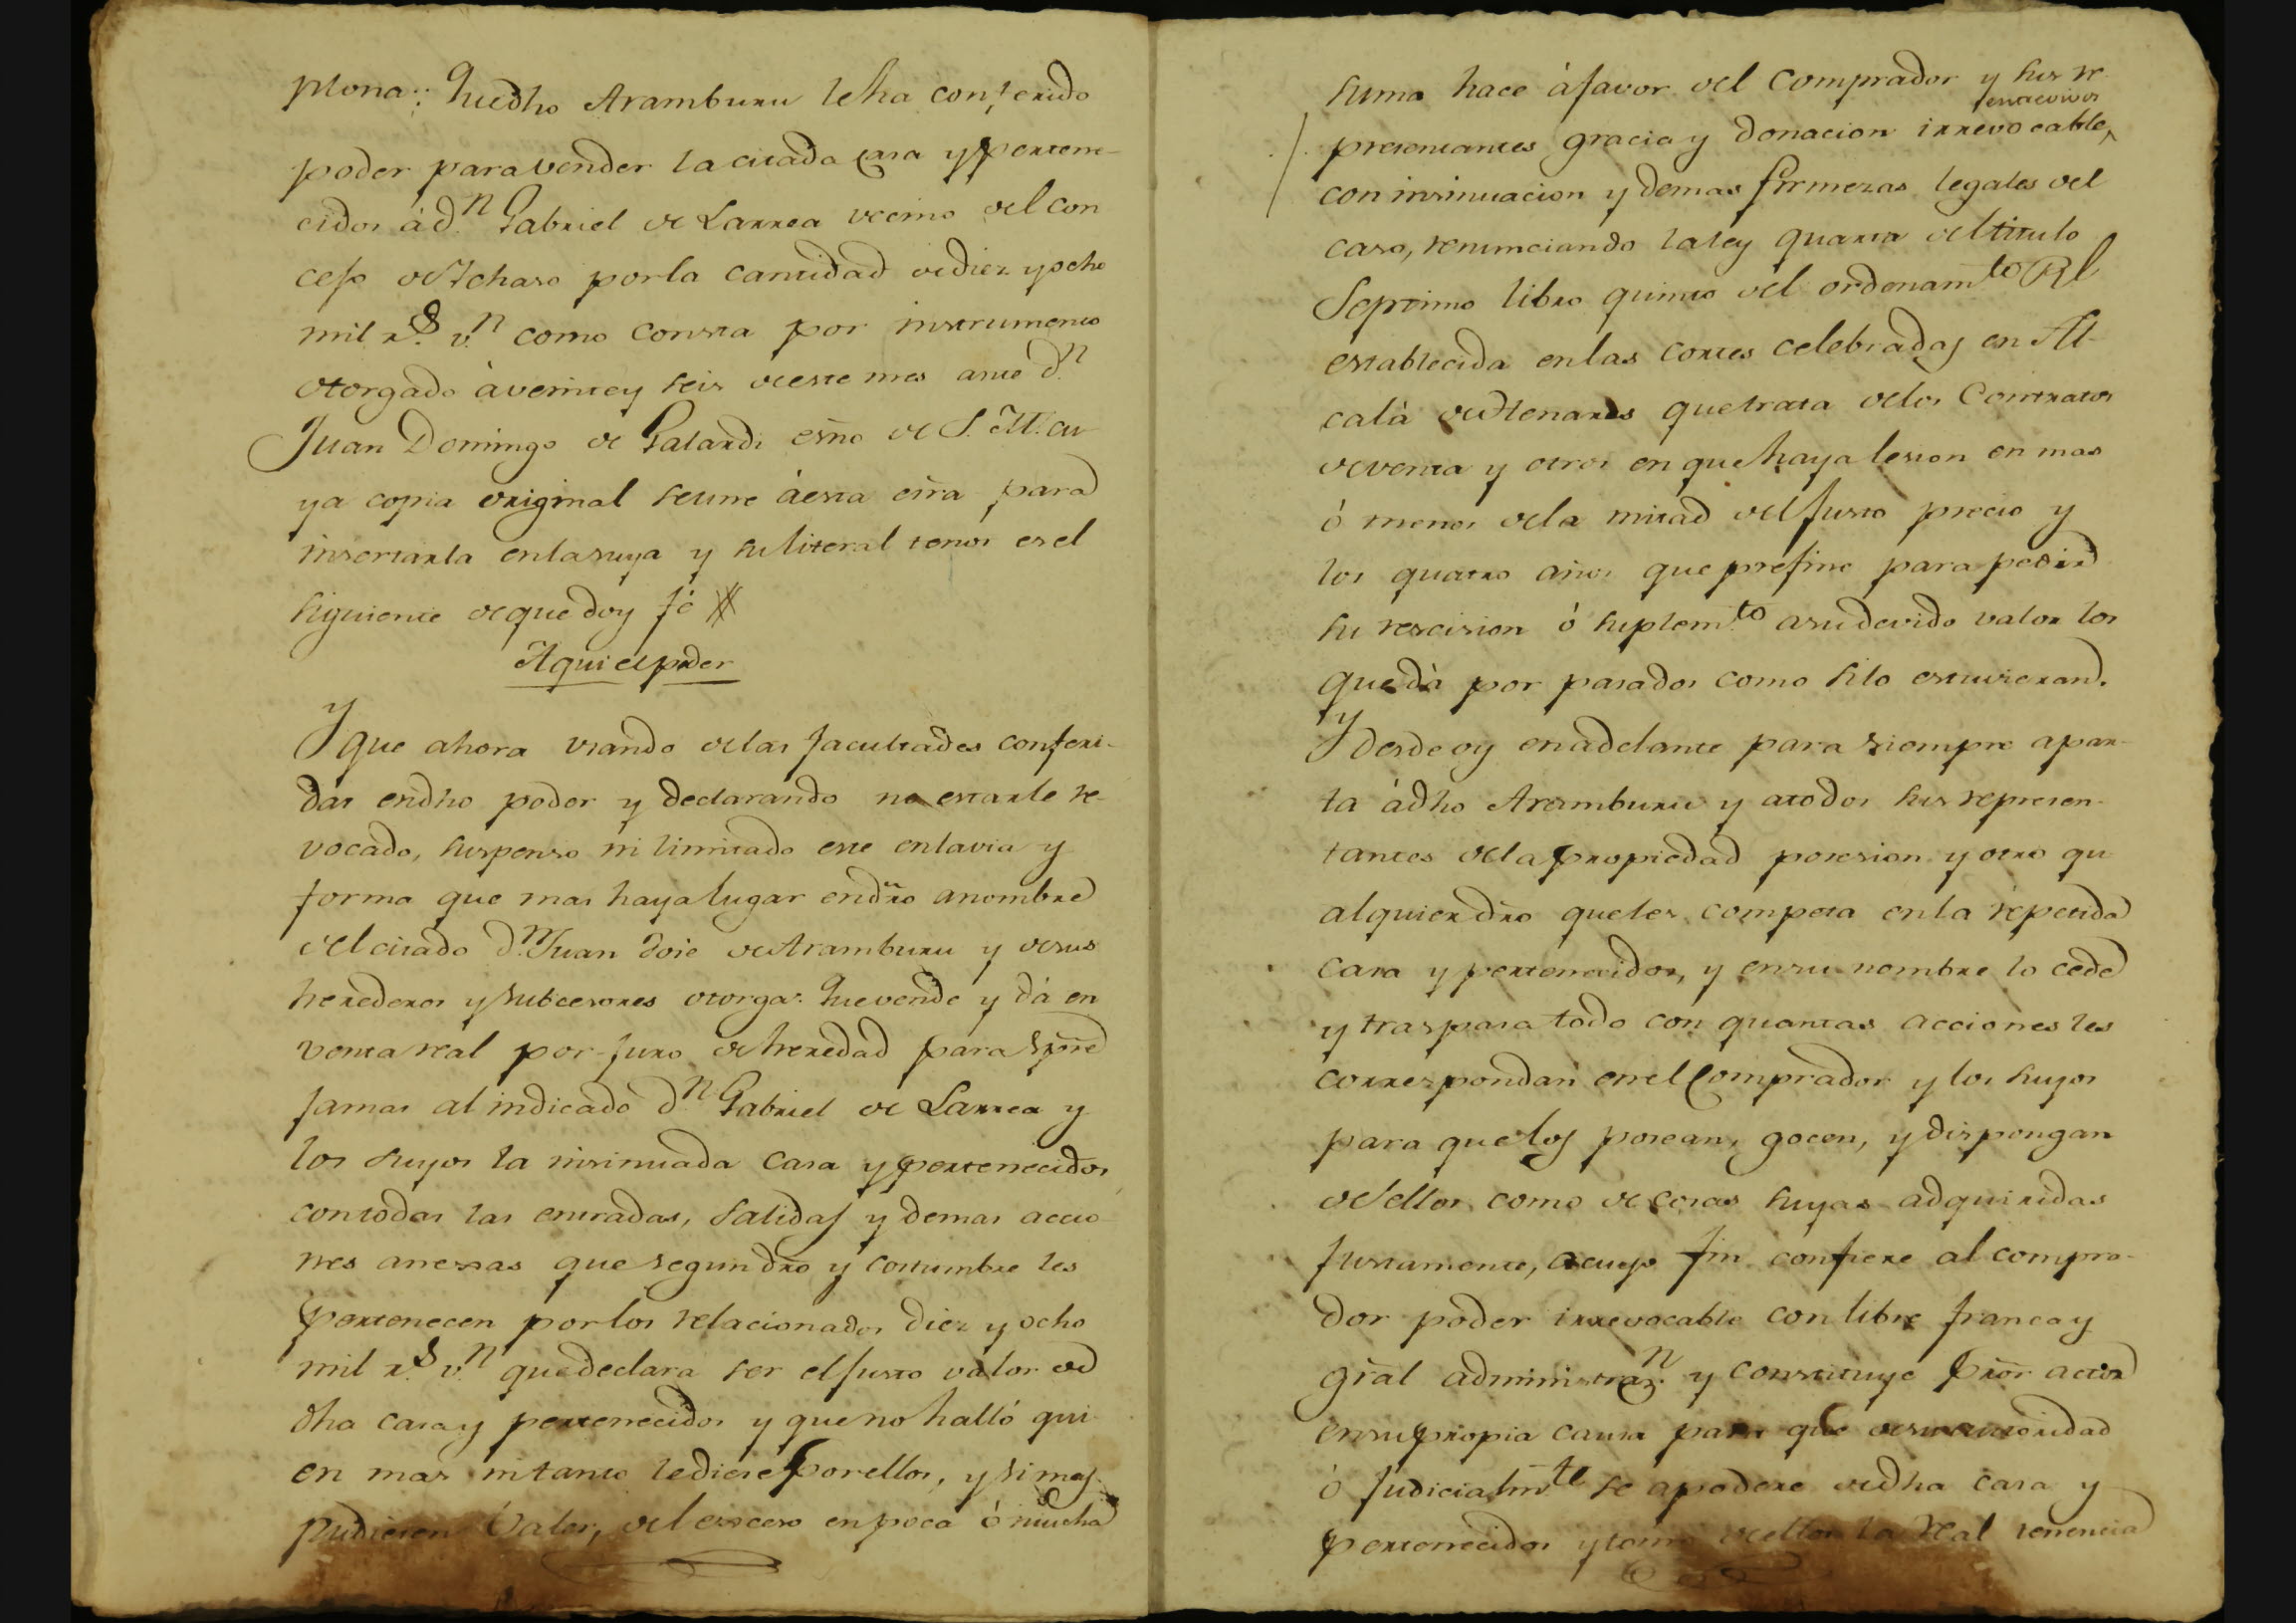 plona: Quedho Aramburu leha conferido
poder paravender lacitada casa y pertene-
cidos ád.n Gabriel de Larrea vecino del con
cejo de Ycharo porla cantidad dediez yocho
mil r.s v.n como consta por instrumento
otorgado áveintey seis deeste mes ante d.n
Juan Domingo de Galardi esño de S. M. cu
ya copia original seune áesta esra para
insertarla enlasuya y suliteral tenor esel
siguiente deque doy fé
Aqui elpoder
Y que ahora usando delas facultades conferi-
das endho poder y declarando no estarle re-
vocado, suspenso ni limitado este enlavia y
forma que mas hayalugar endro anombre
delcitado d.n Juan Jose deAramburu y desus
herederos ysubcesores otorga: Quevende y dá en
ventareal por juro deheredad para spre
jamas al indicado d.n Gabriel de Larrea y
los suyos la insinuada casa y pertenecidos
contodas las entradas, salidas y demas accio-
nes anexas que segundro y costumbre les
pertenecen porlos relacionados diez y ocho
mil r.s v.n quedeclara ser eljusto valor de
dha casay pertenecidos y queno halló qui
en mas nitanto lediese porellos, ysimas
pudiesen valer, del exceso enpoca ó mucha
suma hace áfavor del comprador y sus re-
entrevivos
presentantes gracia y donacion irrevocable,
con insinuacion y demas firmezas legales del
caso, renunciando laley quarta deltitulo
Septimo libro quinto del ordenam.to Rl
establecida enlas cortes celebradas en Al-
calá deHenares quetrata delos Contratos
deventa y otros en quehaya lesion en mas
ó menos dela mitad deljusto precio y
los quatro años que prefine para pedir
su rescision ó suplem.to asudevido valor los
quedá por pasados como silo estuvieran.
Y desde oy enadelante para siempre apar-
ta ádho Aramburu y atodos sus represen-
tantes delapropiedad posesion y otro qu
alquierdro queles competa enla repetida
casa y pertenecidos, y ensu nombre lo cede
y traspasa todo con quantas acciones les
correspondan enelComprador y los suyos
para quelos posean, gocen, ydispongan
deellos como de cosas suyas adquiridas
justamente, acuyo fin confiere al compra-
dor poder irrevocable con libre francay
gral administraz.n y constituye Pror actor
ensupropia causa para que desuautoridad
ó judicialm.te se apodere dedha casa y
pertenecidos ytome deellos la real tenencia